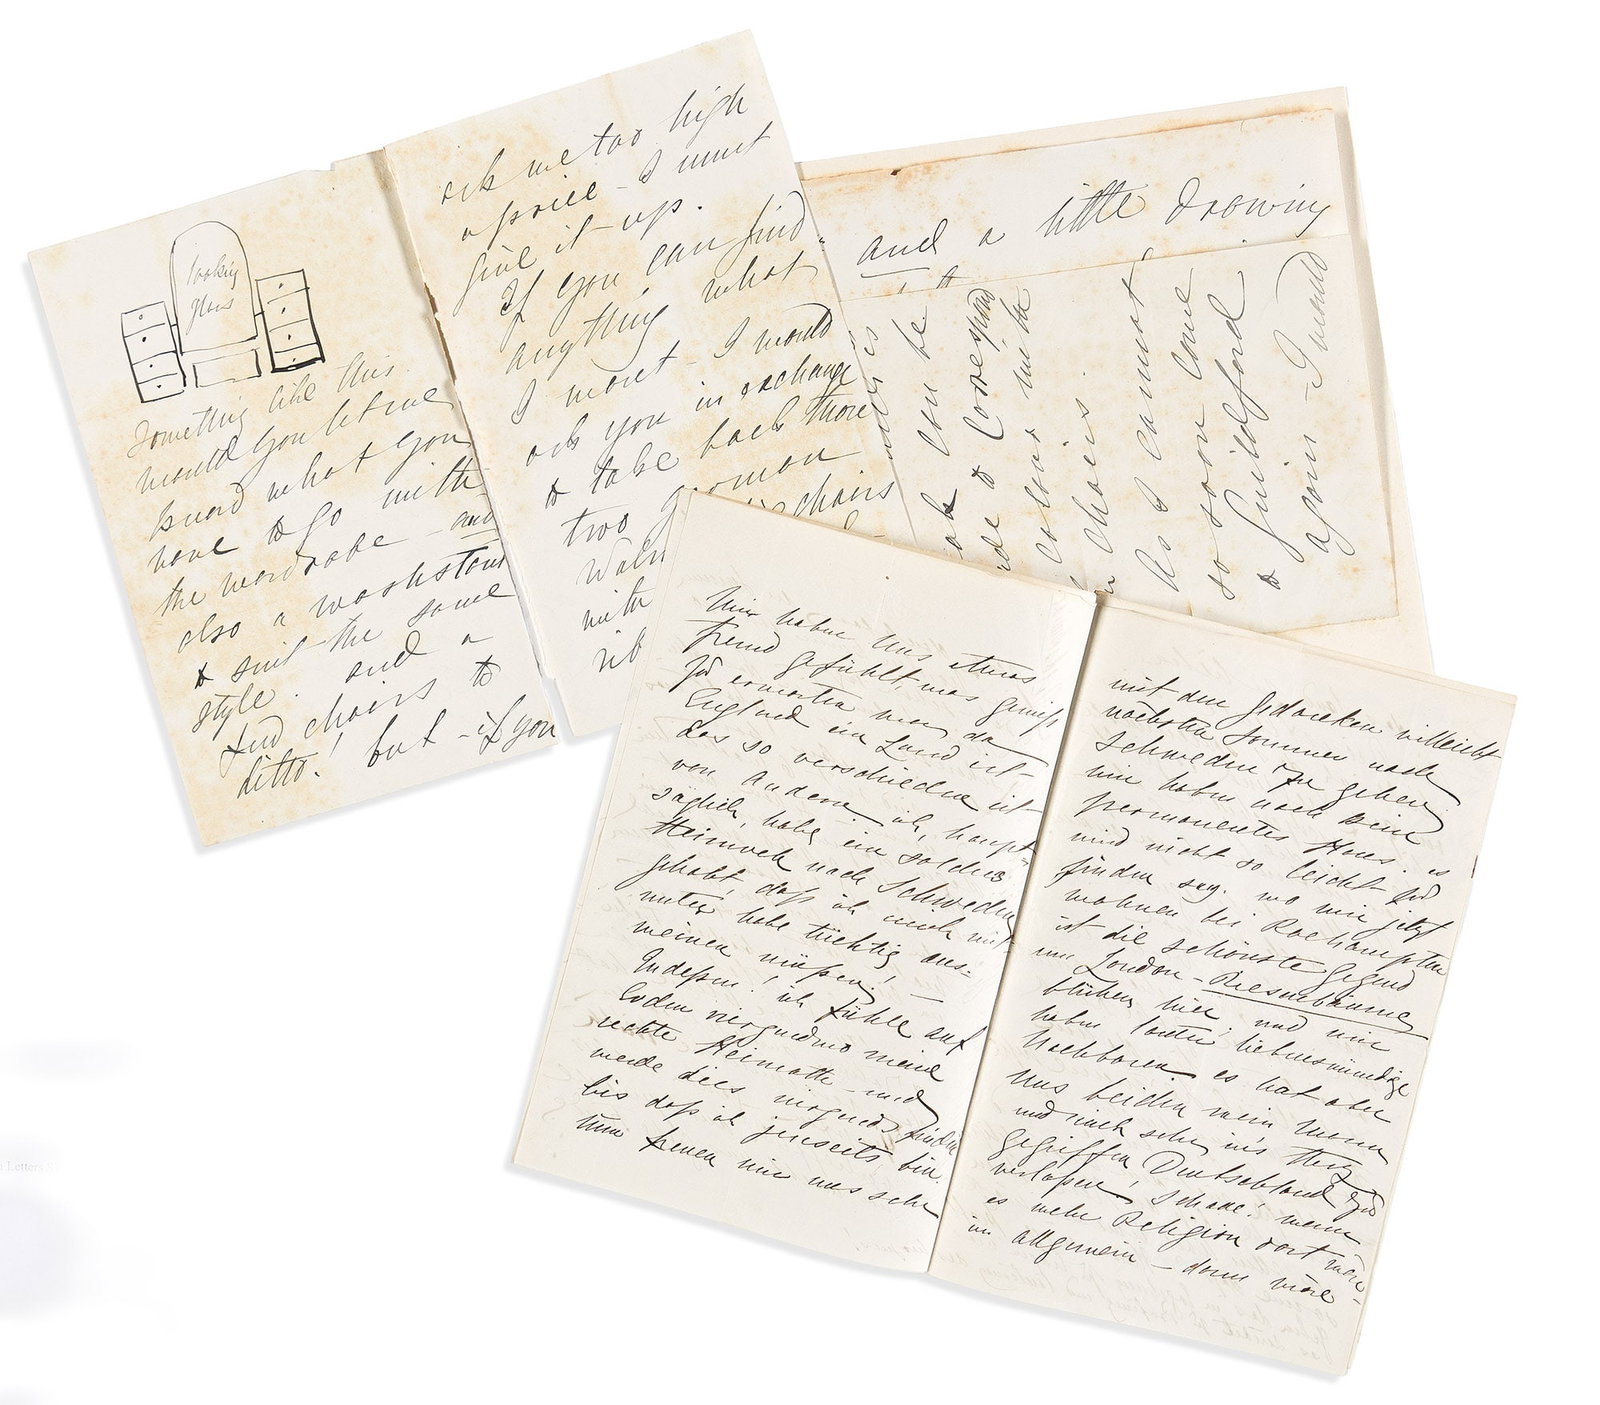 looking
glass
Something like this.
would you let me
know what you
have to go with
the wardrobe - and
also a washstand
to suit the same
style. and a
and chairs to
ditto! but - if you
ask me too high
a price - I must
give it up.
If you can find
anything what
I want - I would
ask you in exchange
to take back those
two German
chairs
with
and a little drawing
can be
& Correspond
colour with the
chairs.
As I cannot
so soon come
to Guildford
again - I would
Wir haben uns etwas
fremd gefühlt, was gewiss
zu erwarten war, da
England ein Land ist -
das so verschieden ist
von Andern. ich, haupt
sächlich, habe ein solches
Heimweh nach Schweden
gehabt, daß ich mich mit
unter habe tüchtig aus=
weinen müßen! -
Indeßen! ich fühle auf
Erden nirgendwo meine
rechte Heimath - und
werde dies nirgends finden
bis daß ich jenseits bin.
Nun freuen wir uns sehr
mit dem Gedanken villeicht
nächsten Sommer nach
Schweden zu gehen
wir haben noch kein
permanentes Haus. es
wird nicht so leicht zu
finden sey. wo wir jetzt
wohnen bei Roehampton
ist die schönste Gegend
um London - Riesenbäume
blühen hier und wir
haben lauter liebenswürdige
Nachbaren es hat aber
uns beiden mein Mann
und mich sehr in's Herz
gegriffen Deutschland zu
verlaßen! Schade! wenn
es mehr Religion dort wäre
im allgemein - dann wäre -